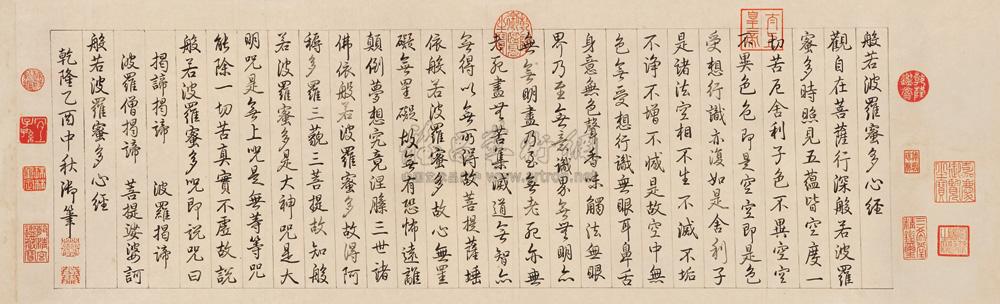 般若波羅蜜多心經
觀自在菩薩行深般若波羅
蜜多時照見五蘊皆空度一
切苦厄舍利子色不異空空
不異色色即是空空即是色
受想行識亦復如是舍利子
是諸法空相不生不滅不垢
不淨不增不減是故空中無
色無受想行識無眼耳鼻舌
身意無色聲香味觸法無眼
界乃至無意識界無無明亦
無無明盡乃至無老死亦無
老死盡无苦集滅道無智亦
無得以無所得故菩提薩埵
依般若波羅蜜多故心無罣
礙無罣礙故無有恐怖遠離
顛倒夢想究竟涅槃三世諸
佛依般若波羅蜜多故得阿
耨多羅三藐三菩提故知般
若波羅蜜多是大神咒是大
明咒是無上咒是無等等咒
能除一切苦真實不虛故說
般若波羅蜜多咒即說咒曰
揭諦揭諦 波羅揭諦
波羅僧揭諦 菩提娑婆訶
般若波羅蜜多心經
乾隆乙酉中秋御筆